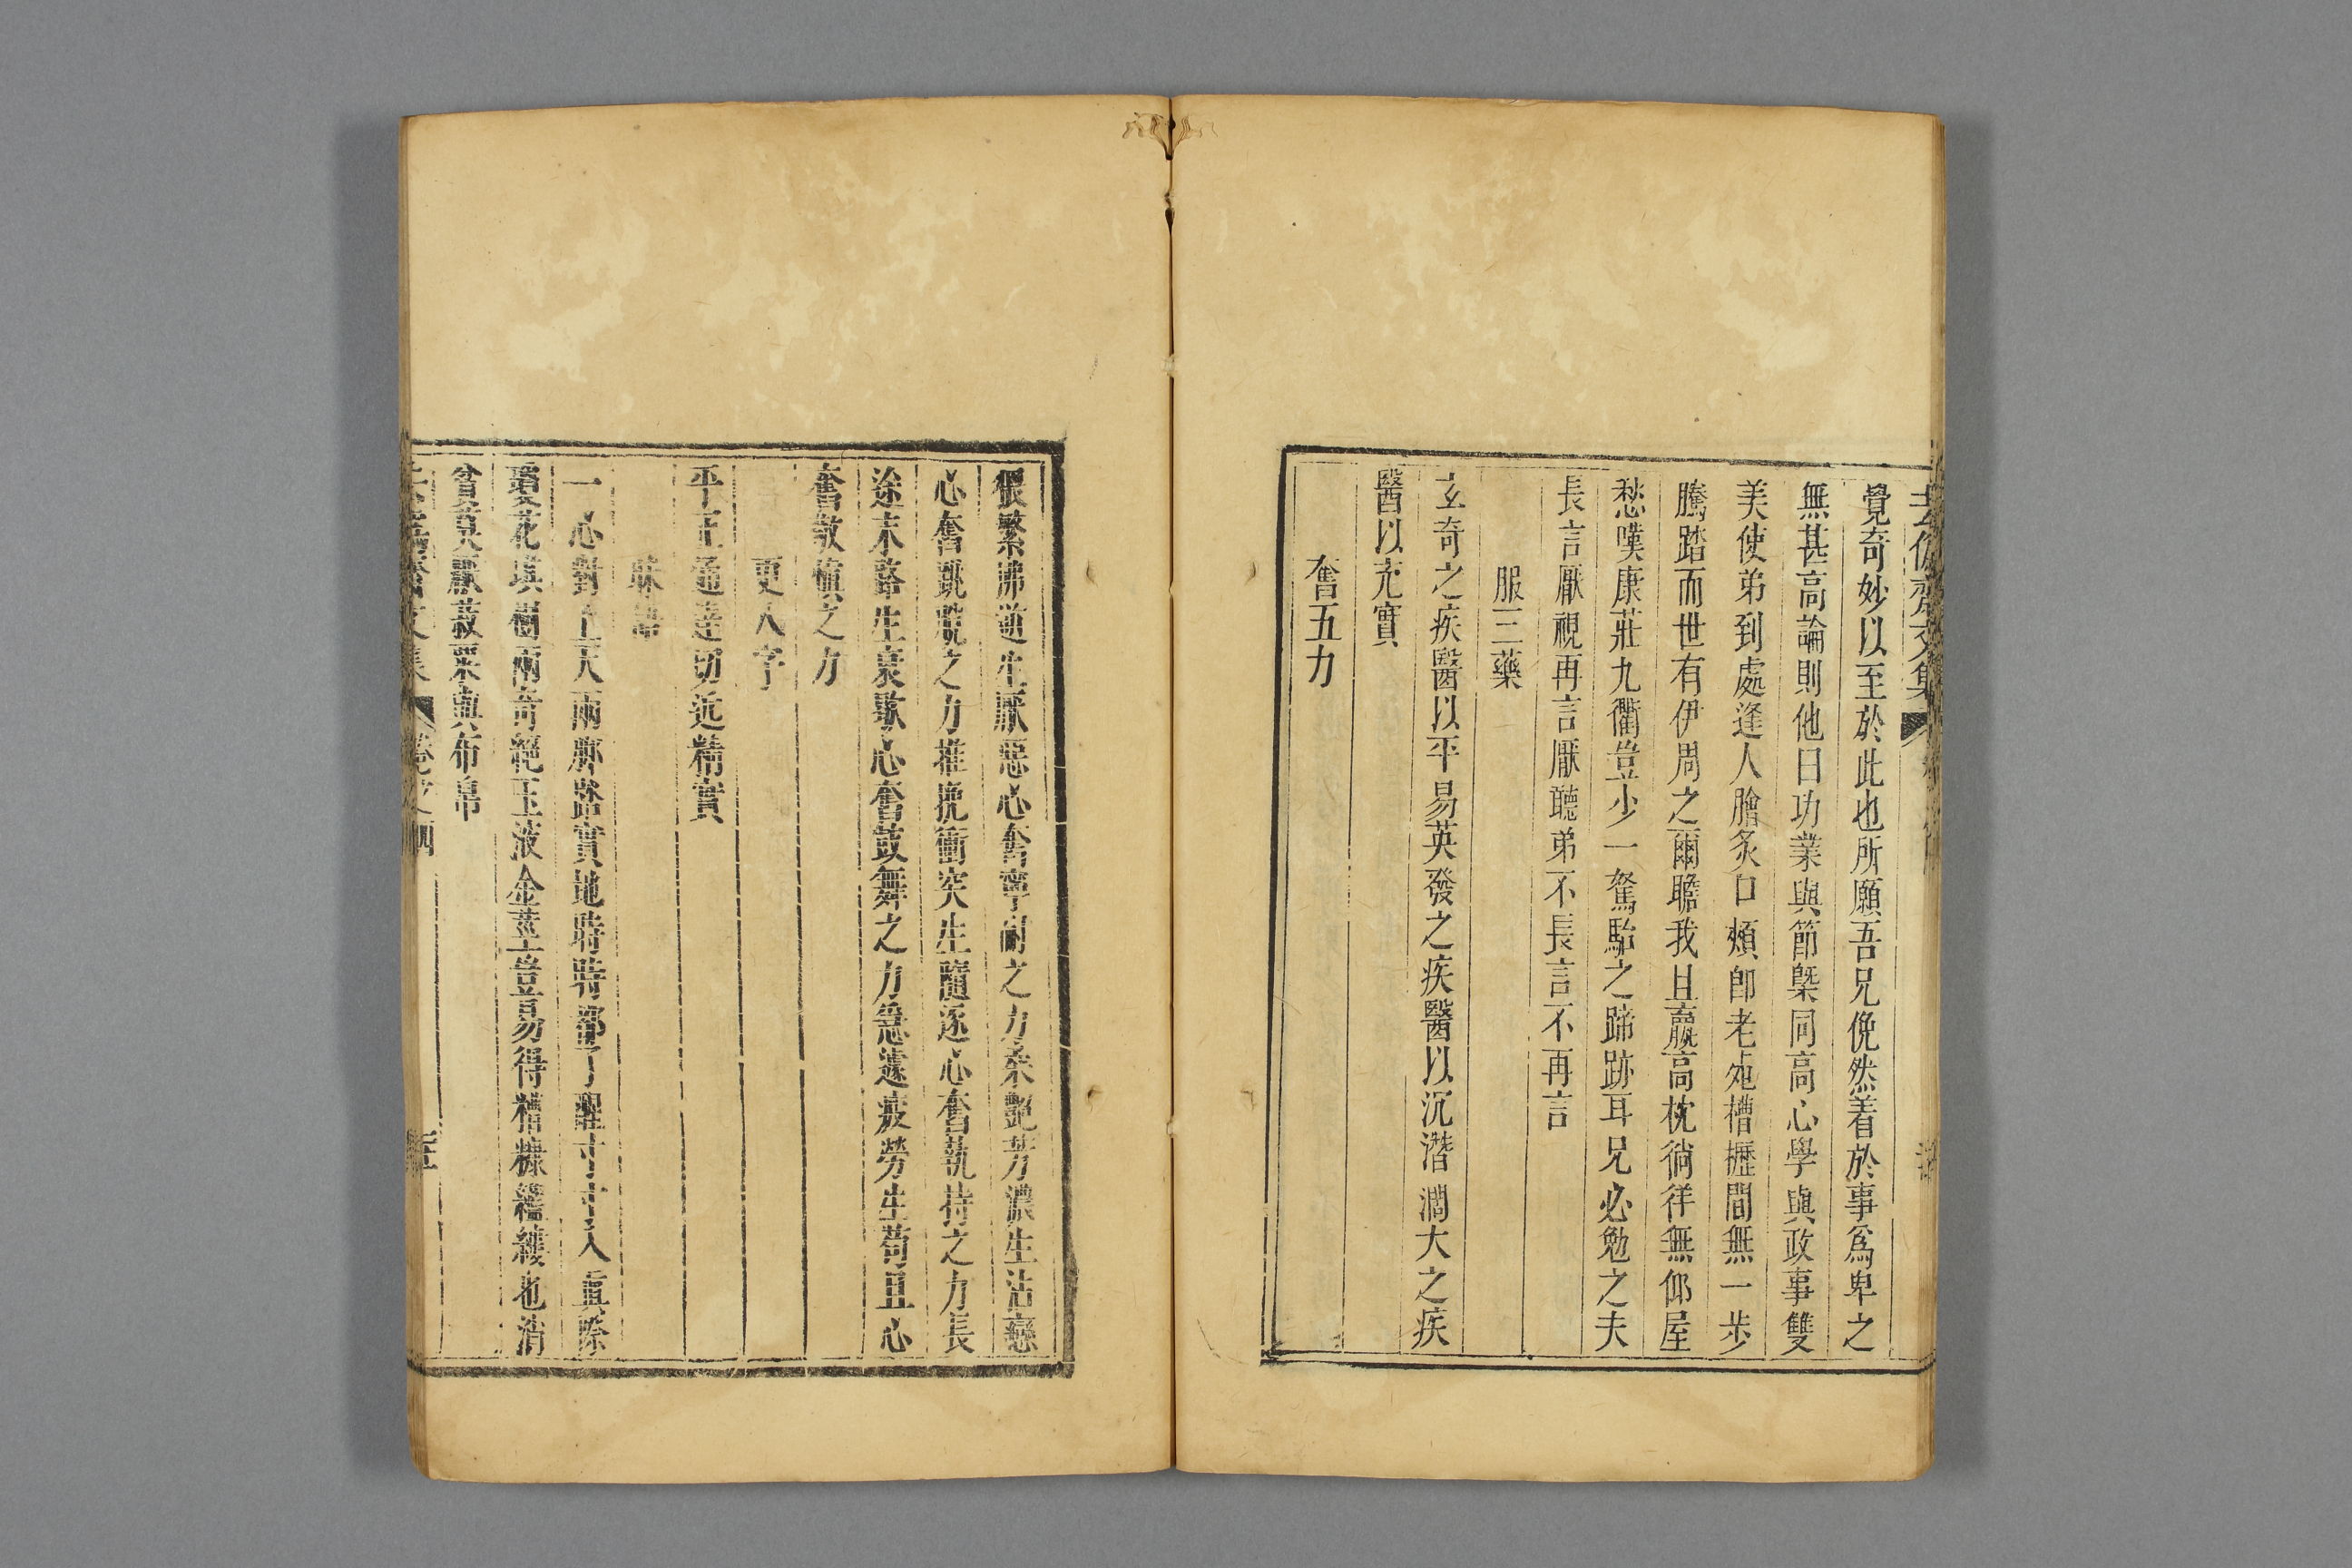 覺奇妙以至於此也所願吾兄俛然着於事爲卑之
無甚高論則他日功業與節槩同高心學與政事雙
美使弟到處逢人膾炙口頰卽老死槽櫪間無一步
騰踏而世有伊周之爾瞻我且齁高枕徜徉無仰屋
愁嘆康莊九衢豈少一駑駘之蹄跡耳兄必勉之夫
長言厭視再言厭聽弟不長言不再言
服三藥
玄奇之疾醫以平易英發之疾醫以沉潛濶大之疾
醫以充實
奮五力
猥繁沸逆生厭惡心奮寧耐之力柔艷芳濃生沾戀
心奮跳脫之力推挽衝突生隨逐心奮執持之力長
途末路生衰歇心奮鼓舞之力急遽疲勞生苟且心
奮敬慎之力
更八字
平正通達切近精實
寐語
一心對上天兩脚踏實地時時都了醒寸寸入真際
瓊花琪樹兩奇絕玉液金莖豈易得糟糠縕縷也消
貧莫厭菽粟與布帛
去僞齋文集